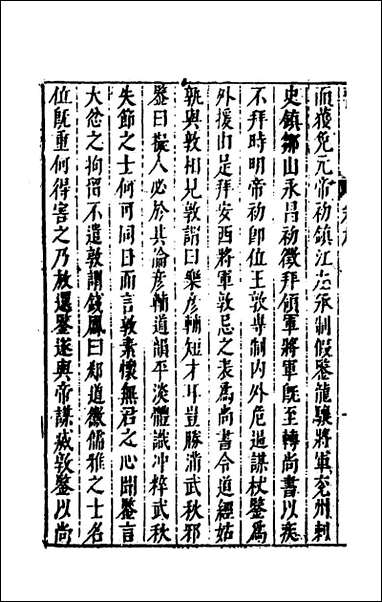 而獲免元帝初鎮江左承制假鑒龍驤將軍兗州刺
史鎮鄒山永昌初徵拜領軍將軍既至轉尚書以疾
不拜時明帝初即位王敦專制內外危逼謀杖鑒為
外援由是拜安西將軍敦忌之表爲尚書令道經姑
孰與敦相見敦謂曰樂彥輔短才耳豈勝滿武秋邪
鑒曰擬人必於其倫彥輔道韻平淡體識冲粹武秋
失節之士何可同日而言敦素懷無君之心聞鑒言
大忿之拘留不遣敦謂錢鳳曰郄道徽儒雅之士名
位既重何得害之乃放還鑒遂與帝謀滅敦鑒以尚